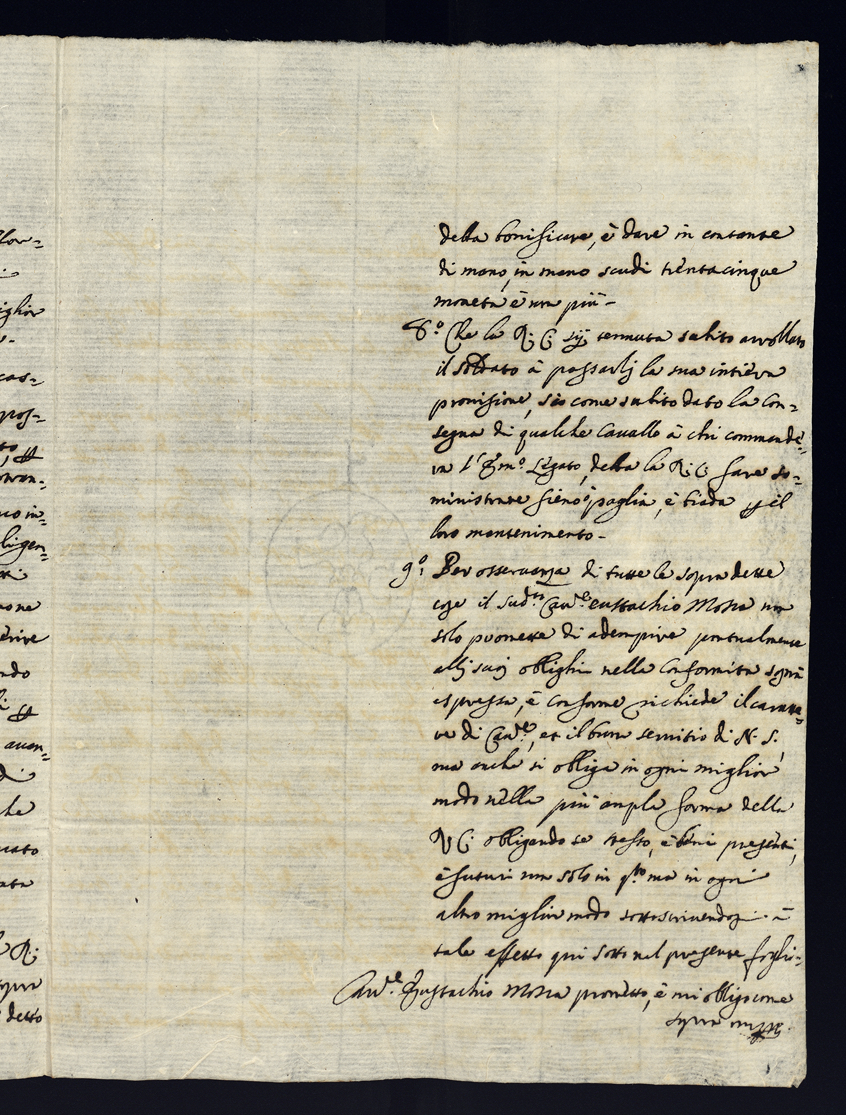 debba bonificare, è dare in contante
di mano, in mano scudi trentacinque
moneta è non più -
8.º Che la R: C: sij tennuta subito arrollato
il soldato à passarlj la sua intiera
provisione, sì come subito dato la con=
segna di qualche Cavallo à chi commande=
rà l'Em.º Legato, debba la R: C: fare so=
ministrare fieno, paglia, è biada p il
loro mantenimento -
9.º Per osservanza di tutte le sopradette
cose il sud.to Cav.re Eustachio non
solo promette di adempire pontualmente
allj suoj oblighi nella conformità sopra
espressa, è conforme richiede il caratte=
re di Cav.re, et il buon servitio di N. S.,
ma anche si obliga in ogni miglior
modo nella più ampla forma della
R: C: obligando se stesso, è beni presenti,
è futuri non solo in q.to ma in ogni
altro miglior modo sottoscrivendosi à
tale effetto qui sotto nel presente foglio=
Cav.re Eustachio prometto, è mi obligo come
sopra
lor=
iglior
cas=
pos=
to, p
in=
ligen=
none
ndo
p
auan=
di
che
R:
sopra
detto